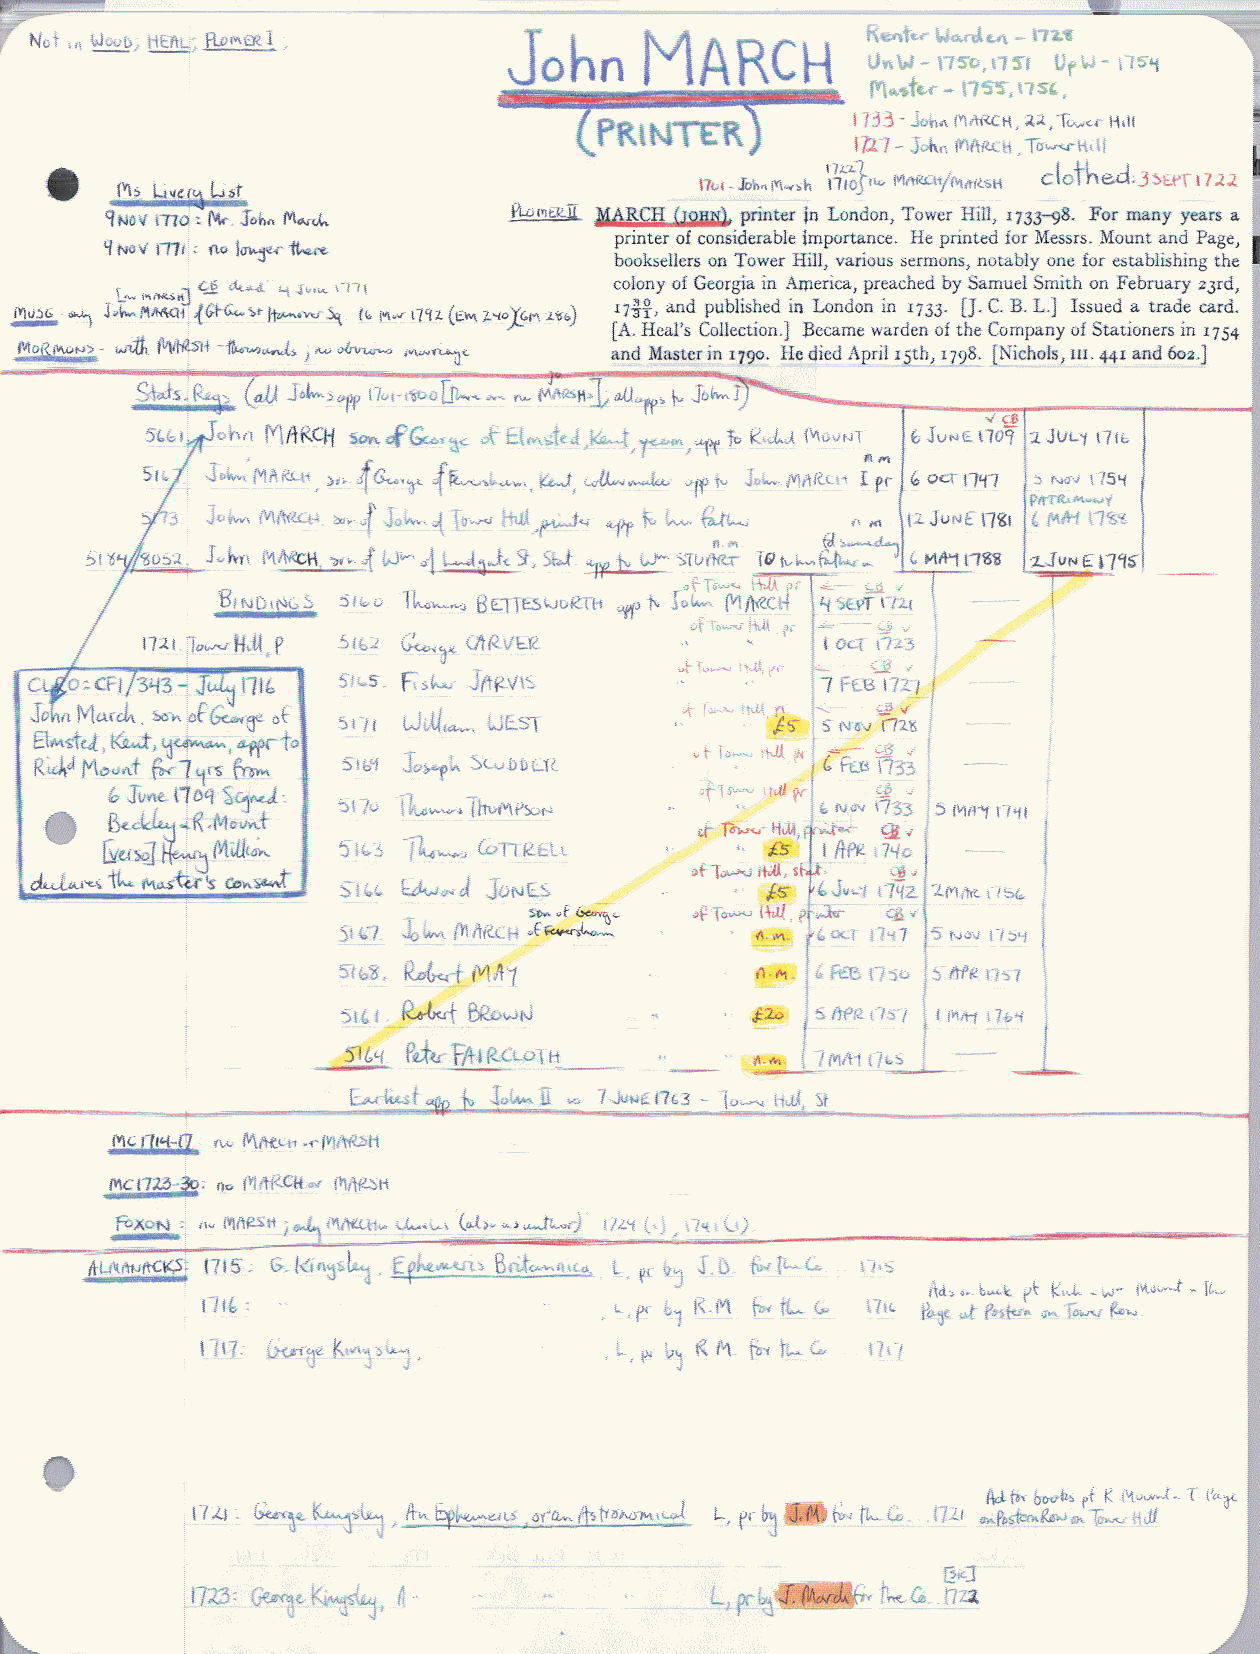 Not in WOOD; HEAL; PLOMER I;
John MARCH
(PRINTER)
Renter Warden - 1728
UnW - 1750, 1751 UpW - 1754
Master - 1755, 1756,
1733 - John MARCH, 22, Tower Hill
1727 - John MARCH, Tower Hill
1701 - John Marsh 1722} 1710} no MARCH/MARSH clothed: 3 SEPT 1722
Ms Livery List
9 NOV 1770: Mr. John March
9 NOV 1771: no longer there
CB dead 4 June 1771
PLOMER II MARCH (JOHN), printer in London, Tower Hill, 1733–98. For many years a
printer of considerable importance. He printed for Messrs. Mount and Page,
booksellers on Tower Hill, various sermons, notably one for establishing the
colony of Georgia in America, preached by Samuel Smith on February 23rd,
1730/31, and published in London in 1733. [J. C. B. L.] Issued a trade card.
[A. Heal's Collection.] Became warden of the Company of Stationers in 1754
and Master in 1790. He died April 15th, 1798. [Nichols, III. 441 and 602.]
[no MARSH]
MUSG - only John MARCH of Gt Geo St Hanover Sq. 16 Mar 1792 (EM 240)(GM 286)
MORMONS - with MARSH - thousands; no obvious marriage
Stats. Regs (all Johns app 1701-1800 [there are no MARSHs]; all apps to John I)
5661 John MARCH son of George of Elmsted, Kent, yeom, app to Richd MOUNT 6 JUNE 1709 CB 2 JULY 1716
5167 John MARCH, son of George of Feversham, Kent, collarmaker app to John MARCH I pr n.m 6 OCT 1747 5 NOV 1754
5173 John MARCH, son of John of Tower Hill, printer app to his father n m 12 JUNE 1781 PATRIMONY 6 MAY 1788
5184/8052 John MARCH, son of Wm of Ludgate St, Stat. app to Wm STUART n.m TO to his father fd same day 6 MAY 1788 2 JUNE 1795
BINDINGS 5160 Thomas BETTESWORTH app to John MARCH of Tower Hill pr CB 4 SEPT 1721
1721. Tower Hill, P 5162 George CARVER of Tower Hill pr CB 1 OCT 1723
5165. Fisher JARVIS of Tower Hill, pr CB 7 FEB 1727
5171 William WEST of Tower Hill pr £5 CB 5 NOV 1728
5169 Joseph SCUDDER of Tower Hill pr CB 6 FEB 1733
5170 Thomas THOMPSON of Tower Hill pr CB 6 NOV 1733 5 MAY 1741
5163 Thomas COTTRELL of Tower Hill, printer £5 CB 1 APR 1740
5166 Edward JONES of Tower Hill, stat. £5 CB 6 JULY 1742 2 MAR 1756
5167. John MARCH son of George of Feversham of Tower Hill, printer n.m. CB 6 OCT 1747 5 NOV 1754
5168. Robert MAY n.m. 6 FEB 1750 5 APR 1757
5161. Robert BROWN £20 5 APR 1757 1 MAY 1764
5164. Peter FAIRCLOTH n.m 7 MAY 1765
CLRO: CF1/343 - July 1716
John March, son of George of
Elmsted, Kent, yeoman, appr to
Richd Mount for 7 yrs from
6 June 1709 Signed:
Beckley & R. Mount
[verso] Henry Million
declares the master's consent
Earliest app to John II is 7 JUNE 1763 - Tower Hill, St
MC1714-17: no MARCH or MARSH
MC1723-30: no MARCH or MARSH
FOXON: no MARSH; only MARCH is Charles (also as author) 1724 (1), 1741 (1).
ALMANACKS: 1715: G. Kingsley. Ephemeris Britannica L, pr by J.D. for the Co 1715
1716: " " L, pr by R.M for the Co 1716
Ads on back pt Rich - Wm Mount - Tho
Page at Postern on Tower Row.
1717: George Kingsley, L, pr by R M. for the Co 1717
1721: George Kingsley, An Ephemeris, or an Astronomical L, pr by J.M. for the Co. 1721
Ad for books pt R Mount - T Page
on Postern Row on Tower Hill
1723: George Kingsley, A " " L, pr by J. March for the Co. 1722 [sic]